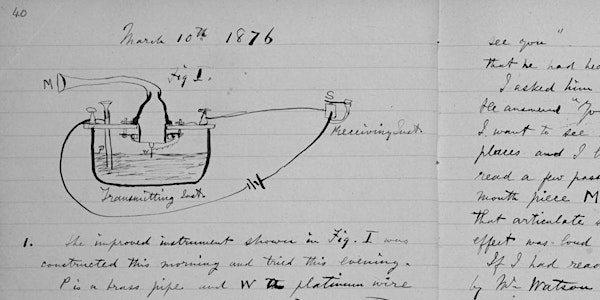 40
March 10th 1876
Fig 1.
M
S
P
W
Receiving Inst.
Transmitting Inst.
1. The improved instrument shown in Fig. I was
constructed this morning and tried this evening.
P is a brass pipe and W the platinum wire
see you"
that he had hea
I asked him
He answered "Yo
I want to see
places and I l
read a few pass
mouth piece M
that articulate s
effect was loud
If I had read
by Mr Watson